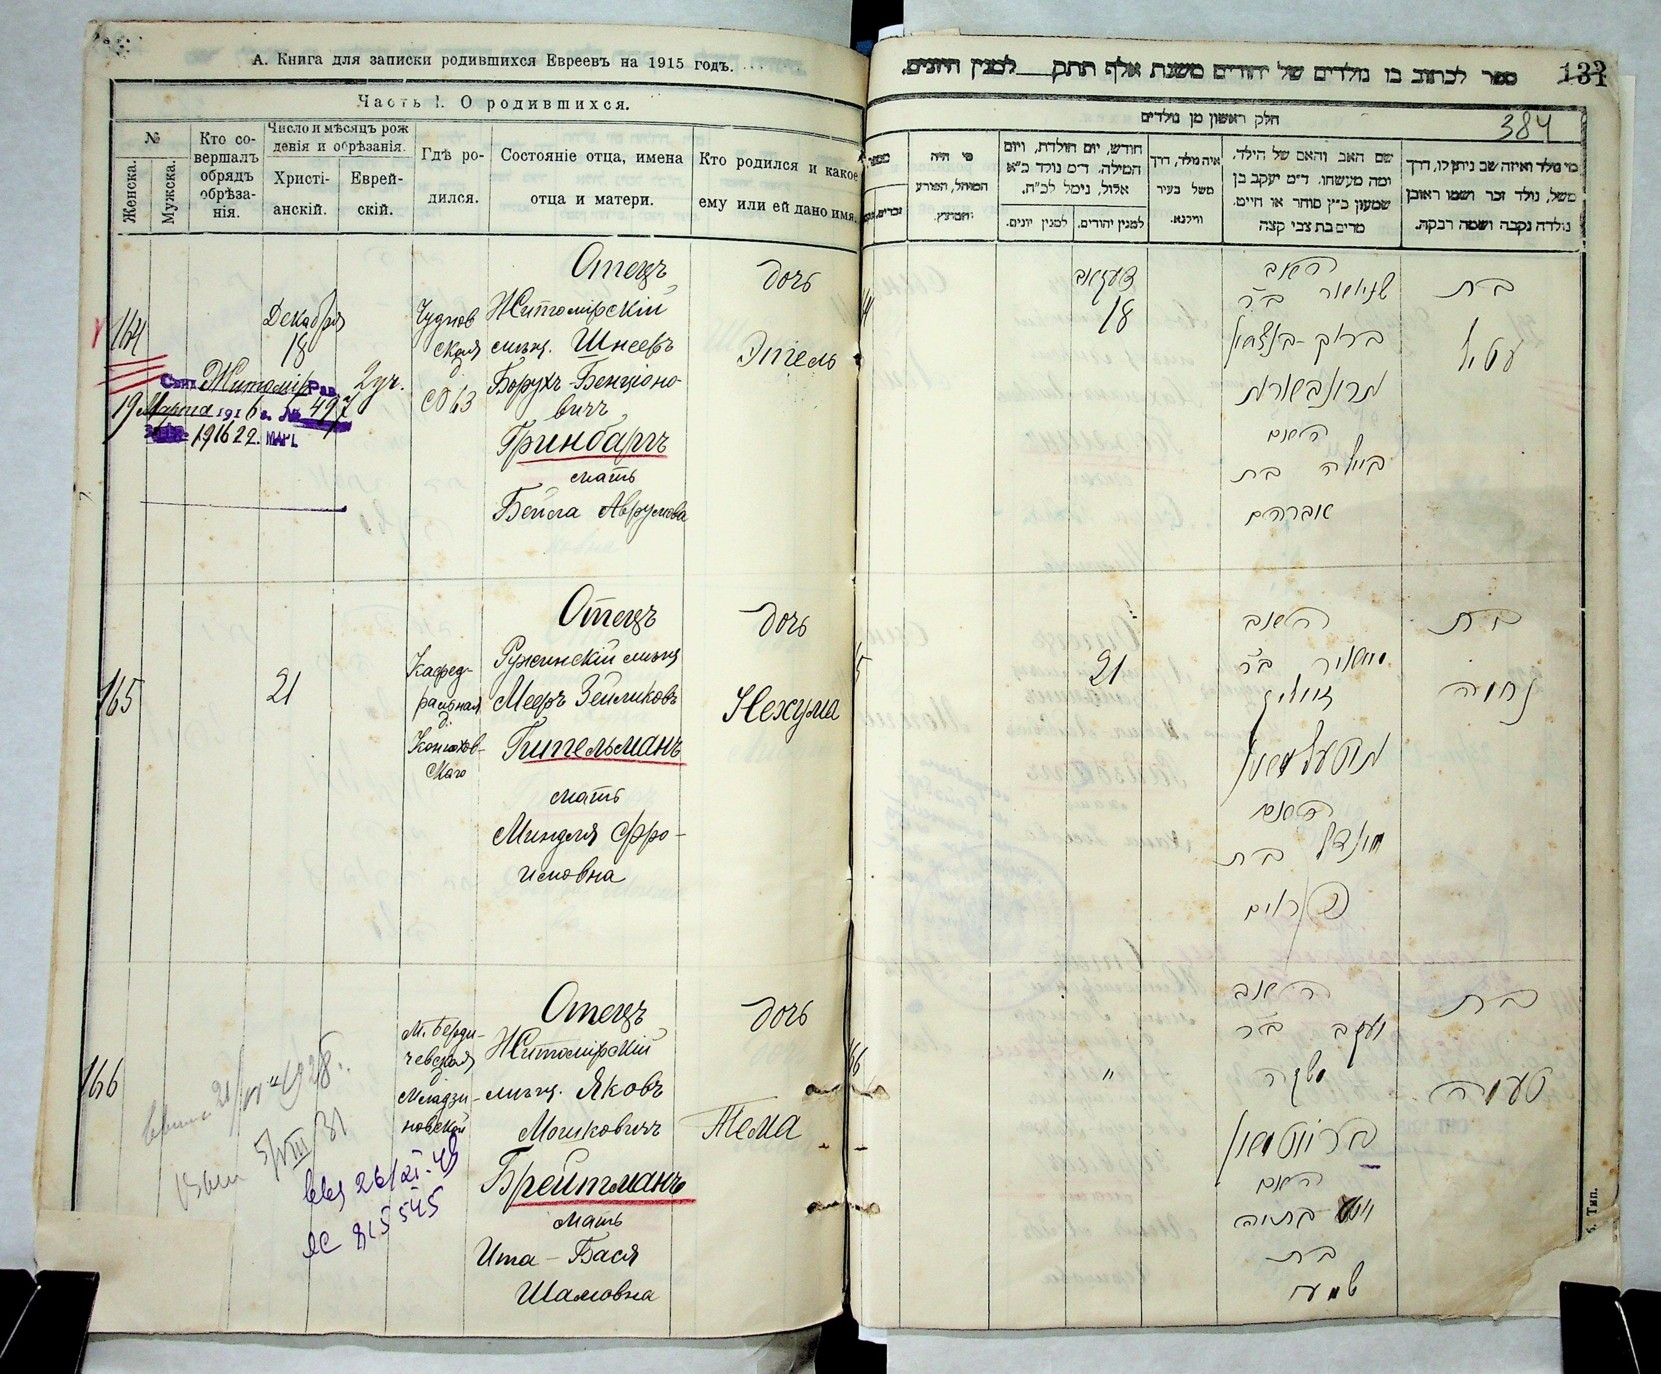 А. Книга для записки родившихся Евреевъ на 1915 годъ.
Часть I. О родившихся.
№
Женска.
Мужска.
Кто со-
вершалъ
обрядъ
обрѣза-
нія.
Число и мѣсяцъ рож
денія и обрѣзанія.
Христі-
анскій.
Еврей-
скій.
Гдѣ ро-
дился.
Состояніе отца, имена
отца и матери.
Кто родился и какое
ему или ей дано имя.
164
Декабря
18
2 уч.
Чуднов
ская
Отецъ
Житомірскій
мѣщ. Шнееръ
Борухъ-Бенціоно-
вичъ
Гринбаргъ
мать
Бейла Аврумова
дочь
Этель
Житомір Рав.
19 Марта 1916 г. № 497
1916 22. МАРТ
165
21
Кафед-
ральная
д.
Отецъ
Ружинскій мѣщ
Мееръ Зейликовъ
Гительманъ
мать
Миндля Фро-
имовна
дочь
Нехума
166
М. Берди-
чевская
д.
Отецъ
Житомірскій
мѣщ. Яковъ
Мошковичъ
Брейтманъ
мать
Ита-Бася
Шамовна
дочь
Тема
5/VIII 31
26/XI-49
815545
133
ספר לכתוב בו נולדים של יהודים משנת אלף תתק למנין היונים.
384
חלק ראשון מן נולדים
מי נולד ואיזה שם ניתן לו, דרך
משל, נולד זכר ושמו ראובן
נולדה נקבה ושמה רבקה.
שם האב והאם של הילד,
ומה מעשהו. ד״מ יעקב בן
שמעון כ״ץ סוחר או חייט.
מרים בת צבי קצה
איה נולד, דרך
משל בעיר
ווילנא.
חודש, יום הולדת, ויום
המילה. ד״מ נולד כ״א
אלול, נימל לכ״ח.
למנין יהודים.
למנין יונים.
מי היה
המוהל, הפורע
והמוצץ.
בת
עטל
האב
שניאור ב״ר
ברוך-בנציון
גרינבארג
האם
ביילה בת
אברהם
דעקאב
18
בת
נחומה
האב
מאיר ב״ר
זעליג
גיטעלמאן
האם
מינדל בת
אפרים
21
בת
טעמה
האב
יעקב ב״ר
משה
ברייטמאן
האם
איטע בתיה
בת
שמעי
"
Тип.